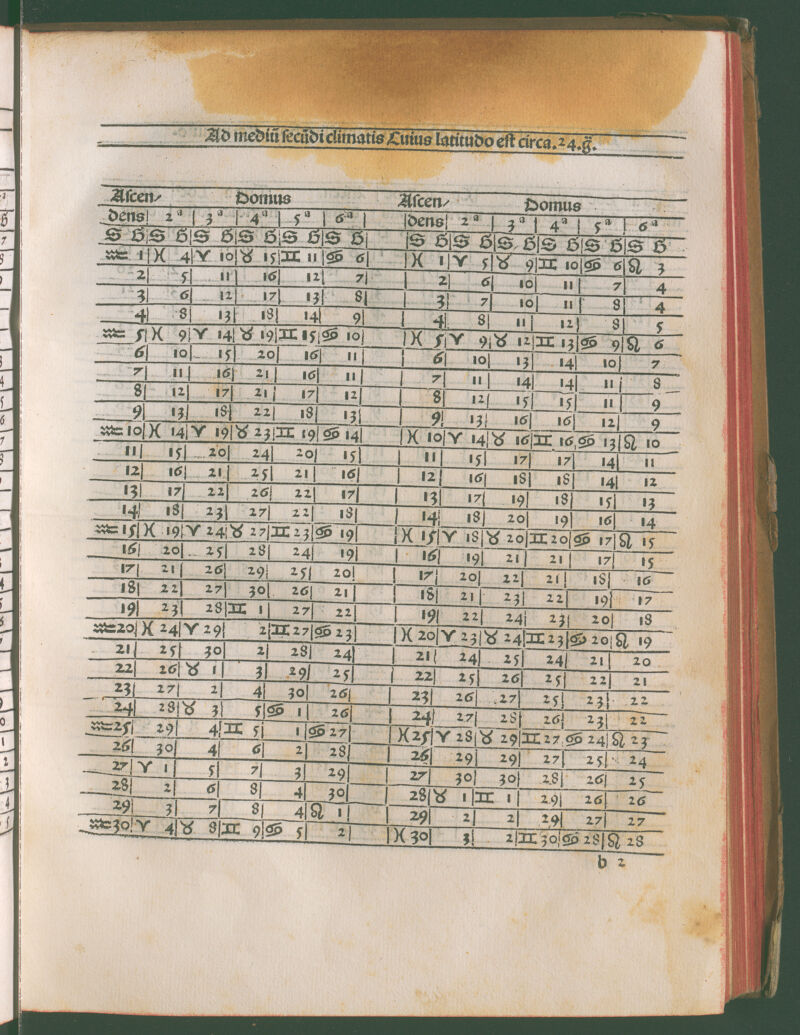 Ad mediũ ſecũdi climatis Cuius latitudo eſt circa.24.g̃.
Aſcen⸗ Domus Aſcen⸗ Domus
dens| 2ª | 3ª | 4ª | 5ª | 6ª | |dens| 2ª | 3ª | 4ª | 5ª | 6ª
S G|S G|S G|S G|S G|S G| |S G|S G|S G|S G|S G|S G
♒ 1|♓ 4|♈ 10|♉ 15|♊ 11|♋ 6| |♓ 1|♈ 5|♉ 9|♊ 10|♋ 6|♌ 3
2| 5| 11| 16| 12| 7| | 2| 6| 10| 11| 7| 4
3| 6| 12| 17| 13| 8| | 3| 7| 10| 11| 8| 4
4| 8| 13| 18| 14| 9| | 4| 8| 11| 12| 8| 5
♒ 5|♓ 9|♈ 14|♉ 19|♊ 15|♋ 10| |♓ 5|♈ 9|♉ 12|♊ 13|♋ 9|♌ 6
6| 10| 15| 20| 16| 11| | 6| 10| 13| 14| 10| 7
7| 11| 16| 21| 16| 11| | 7| 11| 14| 14| 11| 8
8| 12| 17| 21| 17| 12| | 8| 12| 15| 15| 11| 9
9| 13| 18| 22| 18| 13| | 9| 13| 16| 16| 12| 9
♒10|♓ 14|♈ 19|♉ 23|♊ 19|♋ 14| |♓ 10|♈ 14|♉ 16|♊ 16|♋ 13|♌ 10
11| 15| 20| 24| 20| 15| | 11| 15| 17| 17| 14| 11
12| 16| 21| 25| 21| 16| | 12| 16| 18| 18| 14| 12
13| 17| 22| 26| 22| 17| | 13| 17| 19| 18| 15| 13
14| 18| 23| 27| 22| 18| | 14| 18| 20| 19| 16| 14
♒15|♓ 19|♈ 24|♉ 27|♊ 23|♋ 19| |♓ 15|♈ 18|♉ 20|♊ 20|♋ 17|♌ 15
16| 20| 25| 28| 24| 19| | 16| 19| 21| 21| 17| 15
17| 21| 26| 29| 25| 20| | 17| 20| 22| 21| 18| 16
18| 22| 27| 30| 26| 21| | 18| 21| 23| 22| 19| 17
19| 23| 28|♊ 1| 27| 22| | 19| 22| 24| 23| 20| 18
♒20|♓ 24|♈ 29| 2|♊ 27|♋ 23| |♓ 20|♈ 23|♉ 24|♊ 23|♋ 20|♌ 19
21| 25| 30| 2| 28| 24| | 21| 24| 25| 24| 21| 20
22| 26|♉ 1| 3| 29| 25| | 22| 25| 26| 25| 22| 21
23| 27| 2| 4| 30| 26| | 23| 26| 27| 25| 23| 22
24| 28|♉ 3| 5|♋ 1| 26| | 24| 27| 28| 26| 23| 22
♒25| 29| 4|♊ 5| 1|♋ 27| |♓ 25|♈ 28|♉ 29|♊ 27|♋ 24|♌ 23
26| 30| 4| 6| 2| 28| | 26| 29| 29| 27| 25| 24
27|♈ 1| 5| 7| 3| 29| | 27| 30| 30| 28| 26| 25
28| 2| 6| 8| 4| 30| | 28|♉ 1|♊ 1| 29| 26| 26
29| 3| 7| 8| 4|♌ 1| | 29| 2| 2| 29| 27| 27
♒30|♈ 4|♉ 8|♊ 9|♋ 5| 2| |♓ 30| 3| 2|♊ 30|♋ 28|♌ 28
b 2